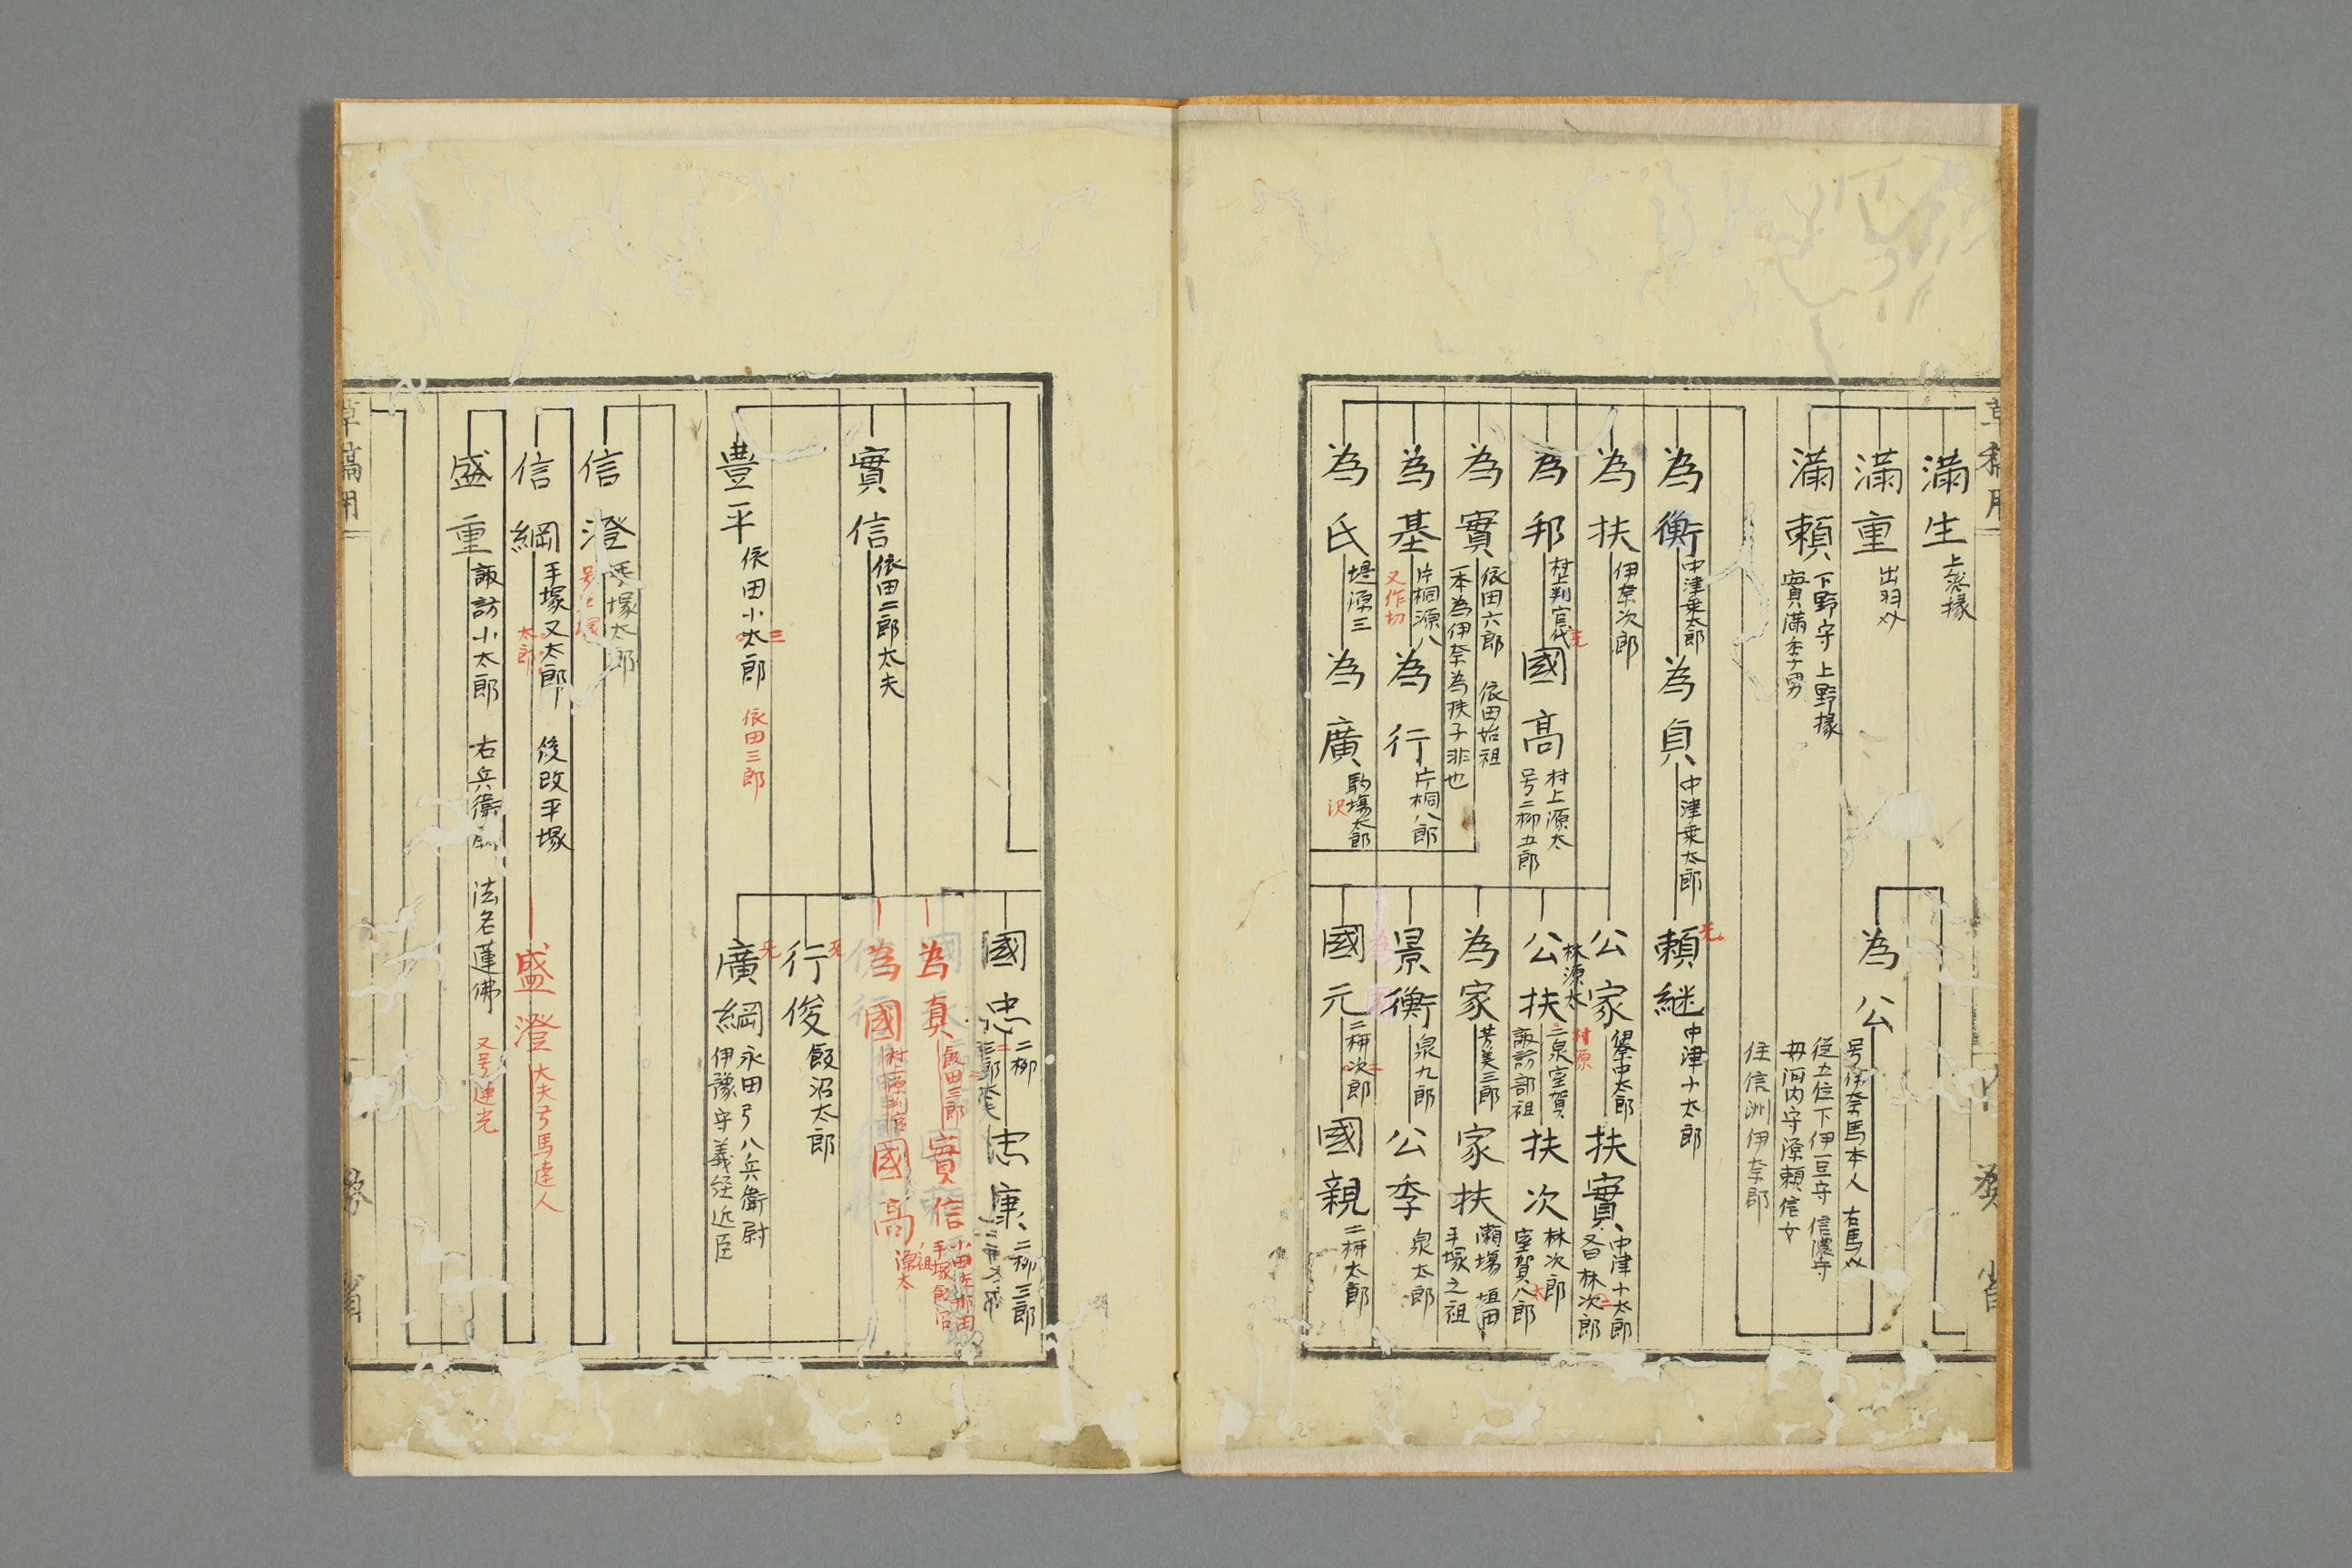 滿生 上総掾
滿重 出羽守
滿頼 下野守 上野掾
實滿季男
為公
号伊奈馬本人 右馬允
従五位下伊豆守 信濃守
母河内守源頼信女
住信州伊奈郡
為衡 中津乗太郎
為貞 中津乗太郎
頼継 中津十太郎
无
為扶 伊奈次郎
公家 伊奈中太郎
林源太
扶實 中津十太郎
又号林次郎
為邦 村上判官代
无
國高 村上源太
号二柳五郎
公扶 二泉室賀
諏訪部祖
村原
扶次 林次郎
室賀八郎
太
為實 依田六郎 依田始祖
一本為伊奈為扶子非也
為家 芳美三郎
家扶 瀬塲 垣田
手塚之祖
為基 片桐源八
又作切
為行 片桐八郎
景衡 泉九郎
公季 泉太郎
為氏 堤源三
為廣 駒塲太郎
沢
國元 二柳次郎
三
國親 二柳太郎
國忠 二柳
三郎
忠康 二柳三郎
為真 飯田三郎
二
實信
小田 手塚飯沼
祖
為國 村上源判官
國高 源太
實信 依田二郎太夫
行俊 飯沼太郎
无
廣綱 永田弓八兵衛尉
伊豫守義経近臣
无
豊平 依田小太郎 依田三郎
三
信澄 手塚太郎
信綱 手塚又太郎 後改平塚
太郎
盛澄 大夫弓馬達人
盛重 諏訪小太郎 右兵衛尉 法名蓮佛 又号連光
草稿用